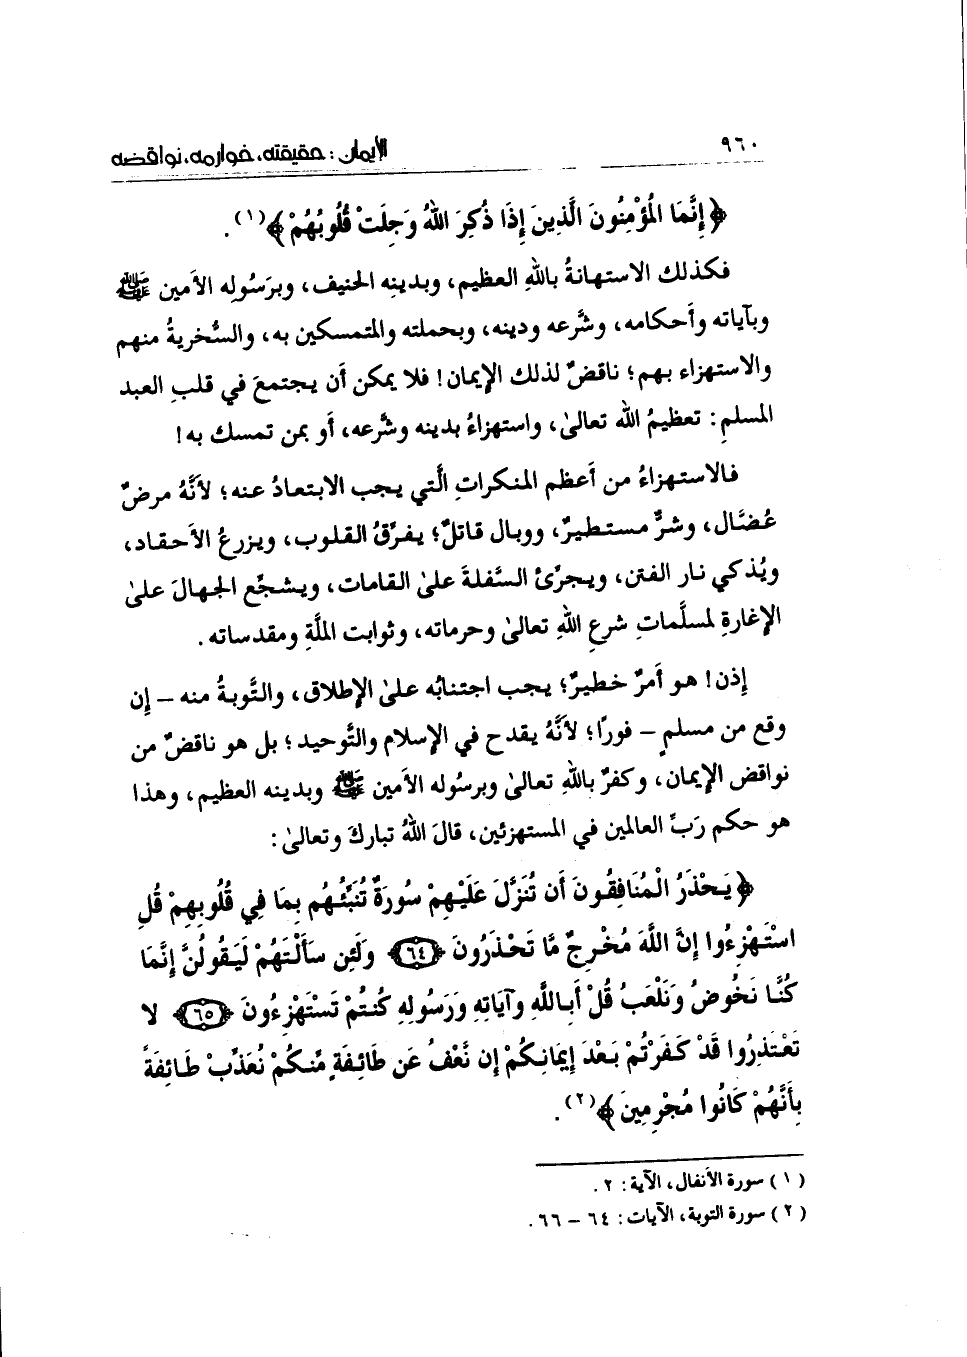 ٩٦٠
الإيمان: حقيقته، خوارمه، نواقضه
﴿إِنَّمَا المُؤْمِنُونَ الَّذِينَ إِذَا ذُكِرَ اللهُ وَجِلَتْ قُلُوبُهُمْ﴾(١).
فكذلك الاستهانةُ باللهِ العظيم، وبدينِه الحنيف، وبرَسُولِه الأمين ﷺ
وبآياته وأحكامه، وشَرْعه ودينه، وبحملته والمتمسكين به، والسُّخريةُ منهم
والاستهزاء بهم؛ ناقضٌ لذلك الإيمان! فلا يمكن أن يجتمعَ في قلبِ العبد
المسلمِ: تعظيمُ الله تعالىٰ، واستهزاءُ بدينه وشَرْعه، أو بمن تمسك به!
فالاستهزاءُ من أعظم المنكراتِ الَّتي يجب الابتعادُ عنه؛ لأنَّهُ مرضٌ
عُضَّال، وشرٌّ مستطيرٌ، ووبال قاتلٌ؛ يفرِّقُ القلوب، ويزرعُ الأحقاد،
ويُذكي نار الفتن، ويجرِّئ السَّفلةَ علىٰ القامات، ويشجِّع الجهالَ علىٰ
الإغارةِ لمسلَّماتِ شرعِ اللهِ تعالىٰ وحرماته، وثوابت الملَّةِ ومقدساته.
إذن! هو أمرٌ خطيرٌ؛ يجب اجتنابُه علىٰ الإطلاق، والتَّوبةُ منه – إن
وقع من مسلمٍ – فورًا؛ لأنَّهُ يقدح في الإسلام والتَّوحيد؛ بل هو ناقضٌ من
نواقض الإيمان، وكفرٌ باللهِ تعالىٰ وبرسُوله الأمين ﷺ وبدينه العظيم، وهذا
هو حكم رَبِّ العالمين في المستهزئين، قالَ اللهُ تباركَ وتعالىٰ:
﴿يَحْذَرُ الْمُنَافِقُونَ أَن تُنَزَّلَ عَلَيْهِمْ سُورَةٌ تُنَبِّئُهُم بِمَا فِي قُلُوبِهِمْ قُلِ
اسْتَهْزِءُوا إِنَّ اللَّهَ مُخْرِجٌ مَّا تَحْذَرُونَ ﴿٦٤﴾ وَلَئِن سَأَلْتَهُمْ لَيَقُولُنَّ إِنَّمَا
كُنَّا نَخُوضُ وَنَلْعَبُ قُلْ أَبِاللَّهِ وَآيَاتِهِ وَرَسُولِهِ كُنتُمْ تَسْتَهْزِءُونَ ﴿٦٥﴾ لا
تَعْتَذِرُوا قَدْ كَفَرْتُمْ بَعْدَ إِيمَانِكُمْ إِن نَّعْفُ عَن طَائِفَةٍ مِّنكُمْ نُعَذِّبْ طَائِفَةً
بِأَنَّهُمْ كَانُوا مُجْرِمِينَ﴾(٢).
(١) سورة الأنفال، الآية: ٢.
(٢) سورة التوبة، الآيات: ٦٤ – ٦٦.